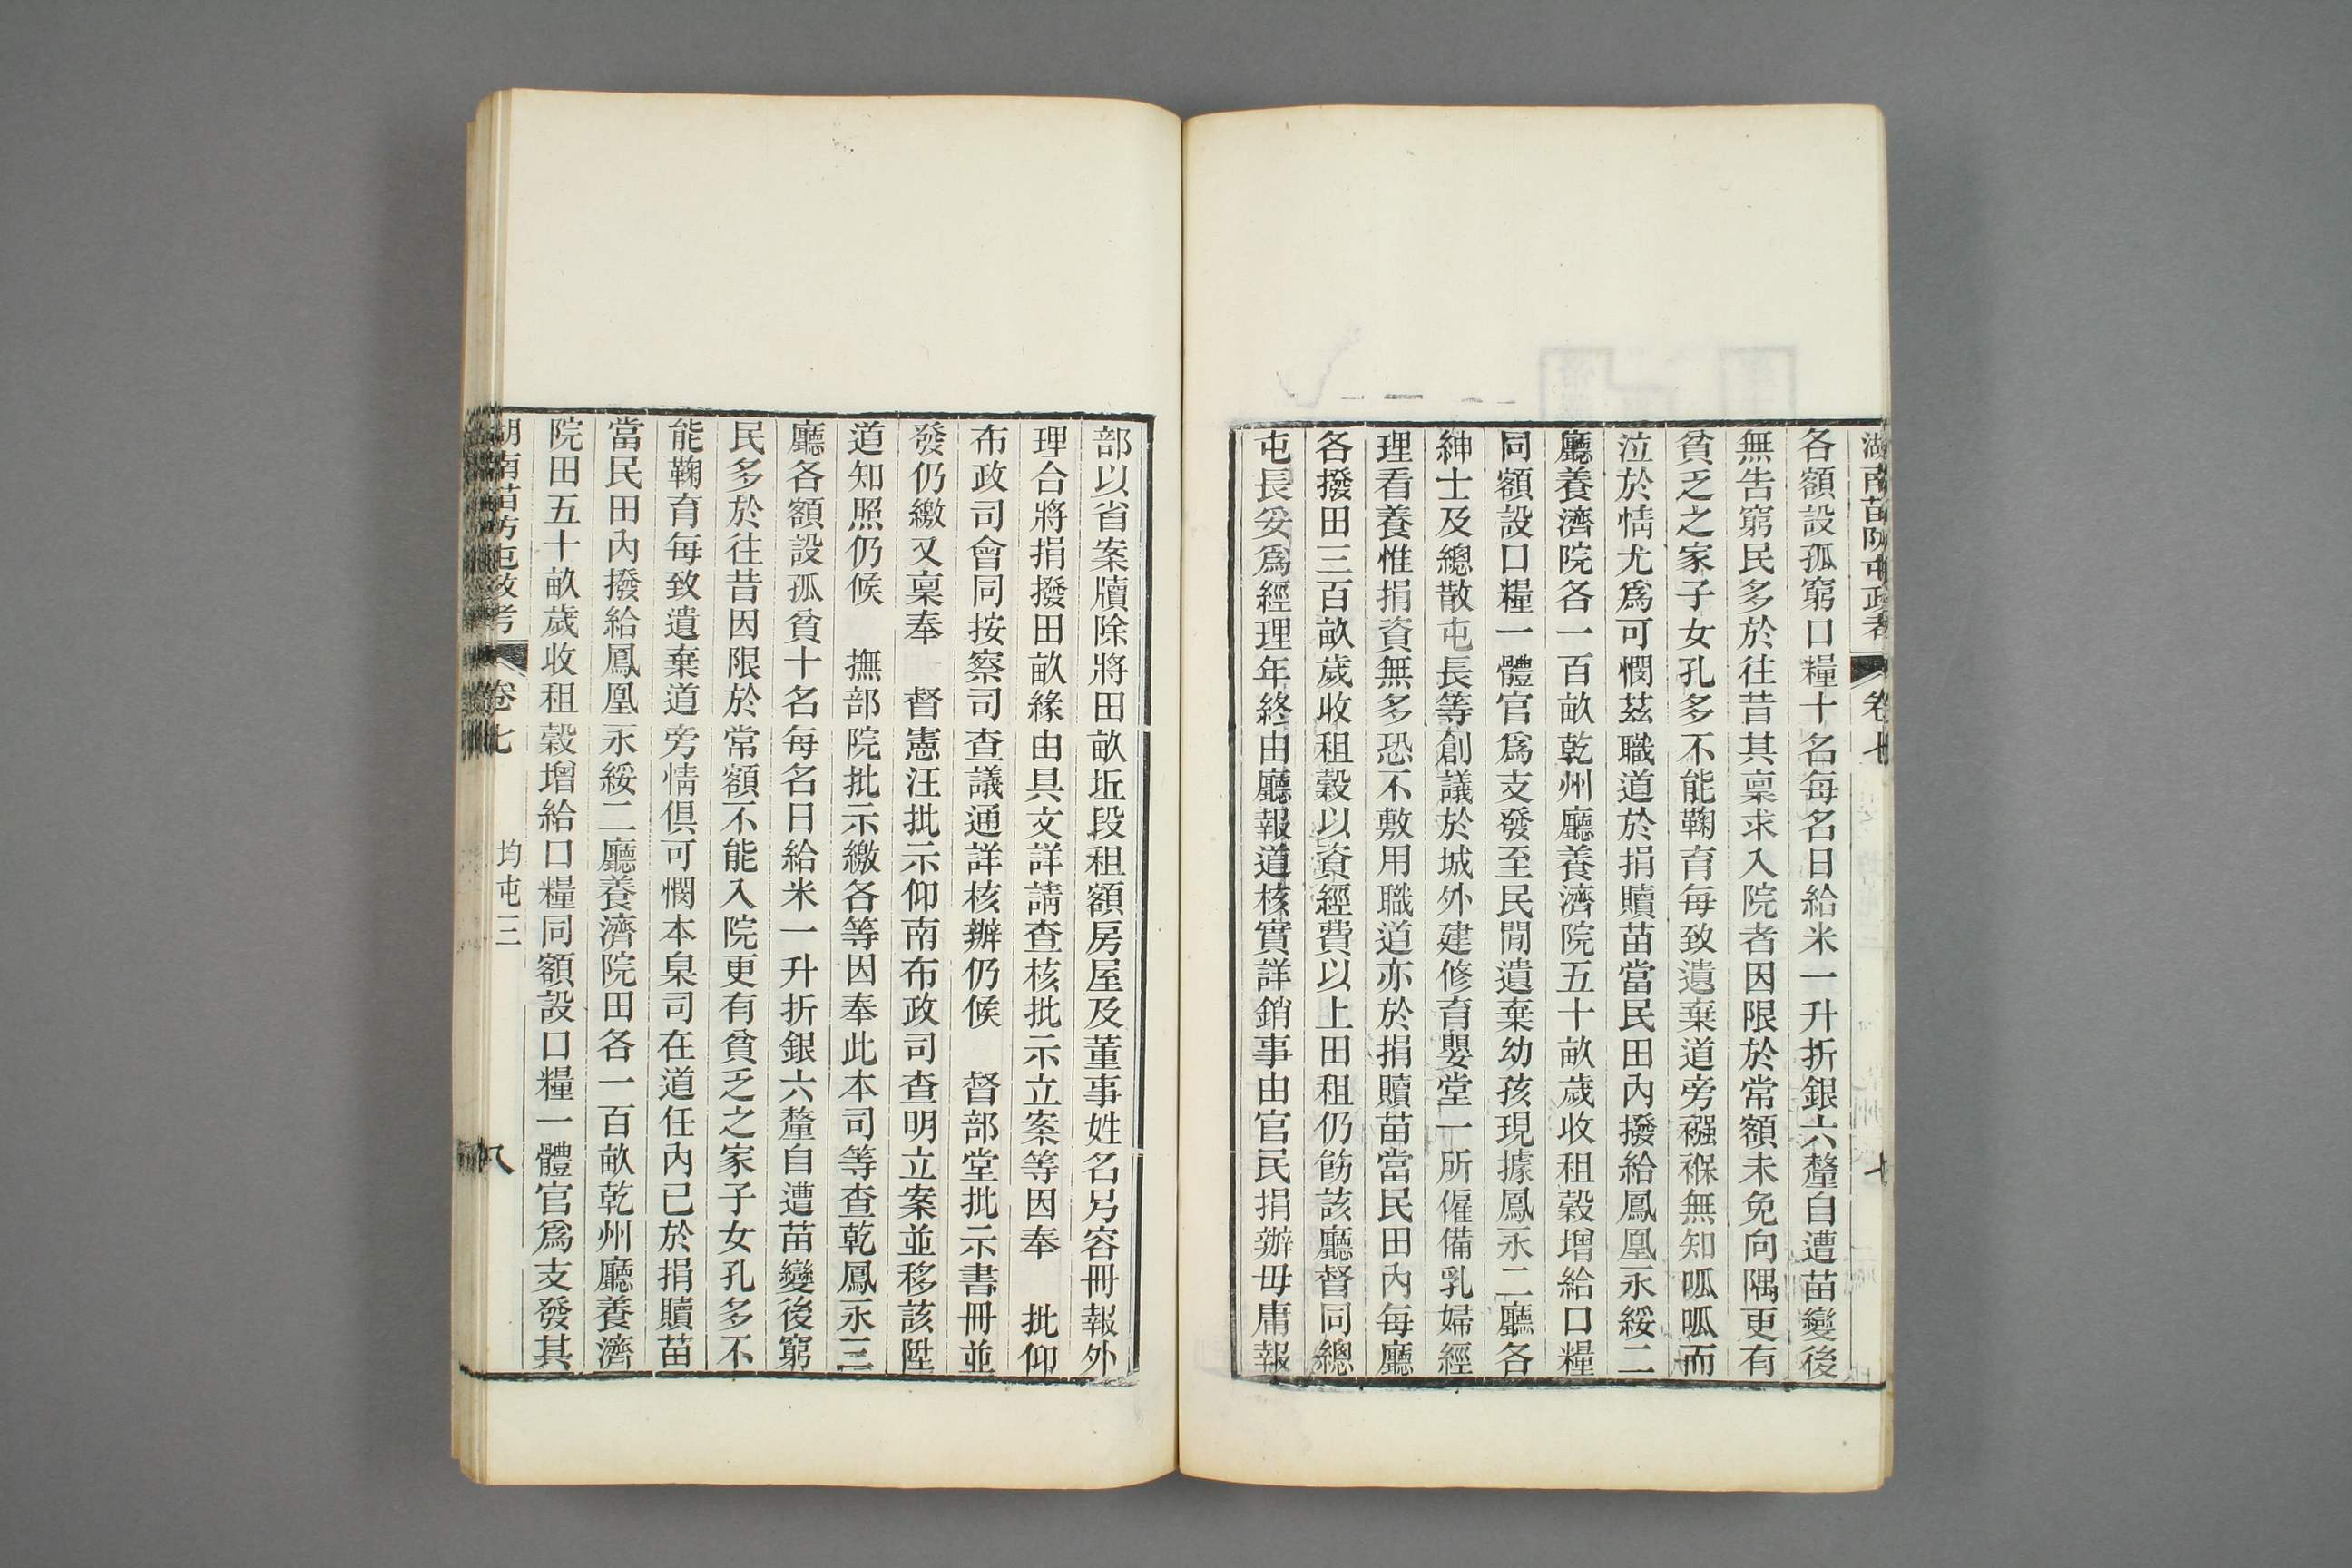 湖南苗防屯政考 卷七 七
各額設孤窮口糧十名每名日給米一升折銀六釐自遭苗變後
無告窮民多於往昔其稟求入院者因限於常額未免向隅更有
貧乏之家子女孔多不能鞠育每致遺棄道旁襁褓無知呱呱而
泣於情尤爲可憫茲職道於捐贖苗當民田內撥給鳳凰永綏二
廳養濟院各一百畝乾州廳養濟院五十畝歲收租穀增給口糧
同額設口糧一體官爲支發至民閒遺棄幼孩現據鳳永二廳各
紳士及總散屯長等創議於城外建修育嬰堂一所僱備乳婦經
理看養惟捐資無多恐不敷用職道亦於捐贖苗當民田內每廳
各撥田三百畝歲收租穀以資經費以上田租仍飭該廳督同總
屯長妥爲經理年終由廳報道核實詳銷事由官民捐辦毋庸報
部以省案牘除將田畝坵段租額房屋及董事姓名另容冊報外
理合將捐撥田畝緣由具文詳請查核批示立案等因奉 批仰
布政司會同按察司查議通詳核辦仍候 督部堂批示書冊並
發仍繳又稟奉 督憲汪批示仰南布政司查明立案並移該陞
道知照仍候 撫部院批示繳各等因奉此本司等查乾鳳永三
廳各額設孤貧十名每名日給米一升折銀六釐自遭苗變後窮
民多於往昔因限於常額不能入院更有貧乏之家子女孔多不
能鞠育每致遺棄道旁情俱可憫本臬司在道任內已於捐贖苗
當民田內撥給鳳凰永綏二廳養濟院田各一百畝乾州廳養濟
院田五十畝歲收租穀增給口糧同額設口糧一體官爲支發其
湖南苗防屯政考 卷七 均屯三 八